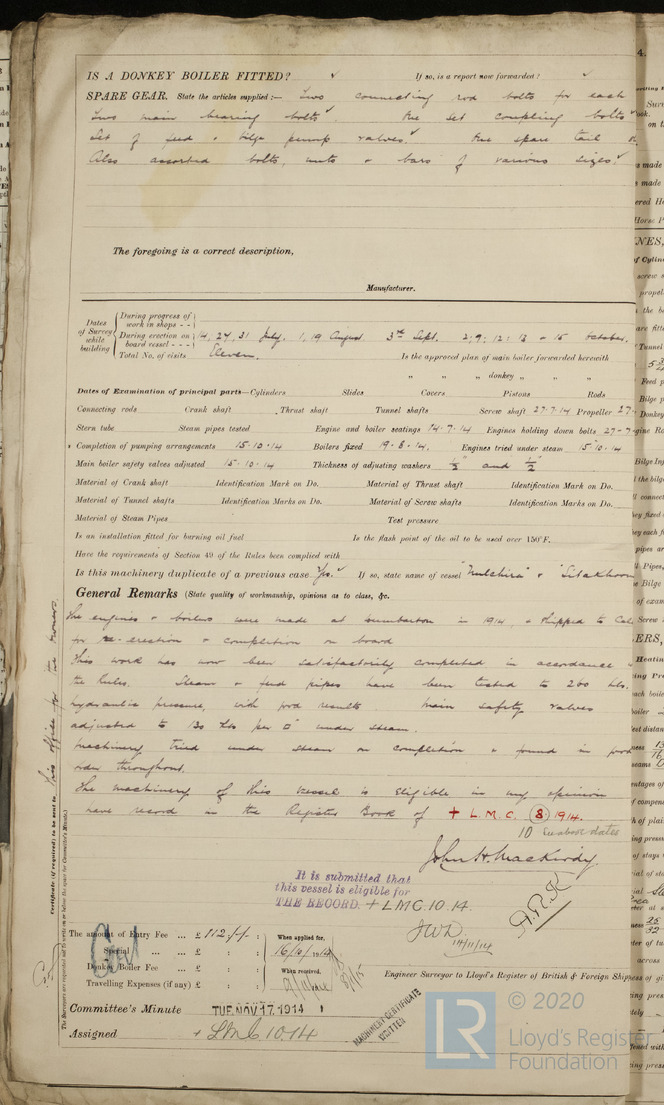 IS A DONKEY BOILER FITTED? ✓ If so, is a report now forwarded? ✓
SPARE GEAR. State the articles supplied:— Two connecting rod bolts for each
two main bearing bolts ✓ One set coupling bolts ✓
Set of feed + bilge pump valves ✓ One spare tail
Also assorted bolts, nuts + bars of various sizes. ✓
The foregoing is a correct description,
Manufacturer.
Dates of Survey while building
During progress of work in shops - -
During erection on board vessel - - - 14, 27, 31 July. 1, 19 August 3rd Sept. 2, 9, 12, 13 + 15 October.
Total No. of visits Eleven. Is the approved plan of main boiler forwarded herewith
" " donkey " " "
Dates of Examination of principal parts—Cylinders Slides Covers Pistons Rods
Connecting rods Crank shaft Thrust shaft Tunnel shafts Screw shaft 27.7.14 Propeller 27
Stern tube Steam pipes tested Engine and boiler seatings 14.7.14 Engines holding down bolts 27-7
Completion of pumping arrangements 15.10.14 Boilers fixed 19.8.14. Engines tried under steam 15.10.14
Main boiler safety valves adjusted 15.10.14 Thickness of adjusting washers 1/2" and 1/2"
Material of Crank shaft Identification Mark on Do. Material of Thrust shaft Identification Mark on Do.
Material of Tunnel shafts Identification Marks on Do. Material of Screw shafts Identification Marks on Do.
Material of Steam Pipes Test pressure
Is an installation fitted for burning oil fuel Is the flash point of the oil to be used over 150°F.
Have the requirements of Section 49 of the Rules been complied with
Is this machinery duplicate of a previous case Yes. ✓ If so, state name of vessel
General Remarks (State quality of workmanship, opinions as to class, &c.
The engines + boilers were made at Dumbarton in 1914, + shipped to Cal
for re-erection + completion on board
This work has now been satisfactorily completed in accordance
the Rules. Steam + feed pipes have been tested to 260 lbs.
hydraulic pressure, with good results Main safety valves
adjusted to 130 lbs per □" under steam.
Machinery tried under steam on completion + found in good
order throughout.
The machinery of this vessel is eligible in my opinion
have record in the Register Book of + L.M.C. 8. 1914.
10 See about dates
John H. Mackirdy
It is submitted that
this vessel is eligible for
THE RECORD. + LMC. 10.14.
JWD.
14/11/14
Certificate (if required) to be sent to This office for the owners
The Surveyors are requested not to write on or below the space for Committee's Minute.
The amount of Entry Fee ... £ 112/-/-
Special ... ... £ : :
Donkey Boiler Fee ... £ : :
Travelling Expenses (if any) £ : :
When applied for,
16/10/1914
When received,
Engineer Surveyor to Lloyd's Register of British & Foreign Ship
Committee's Minute TUE. NOV. 17. 1914
Assigned + LMC 10.14
MACHINERY CERTIFICATE
WRITTEN
LR
© 2020
Lloyd's Register
Foundation